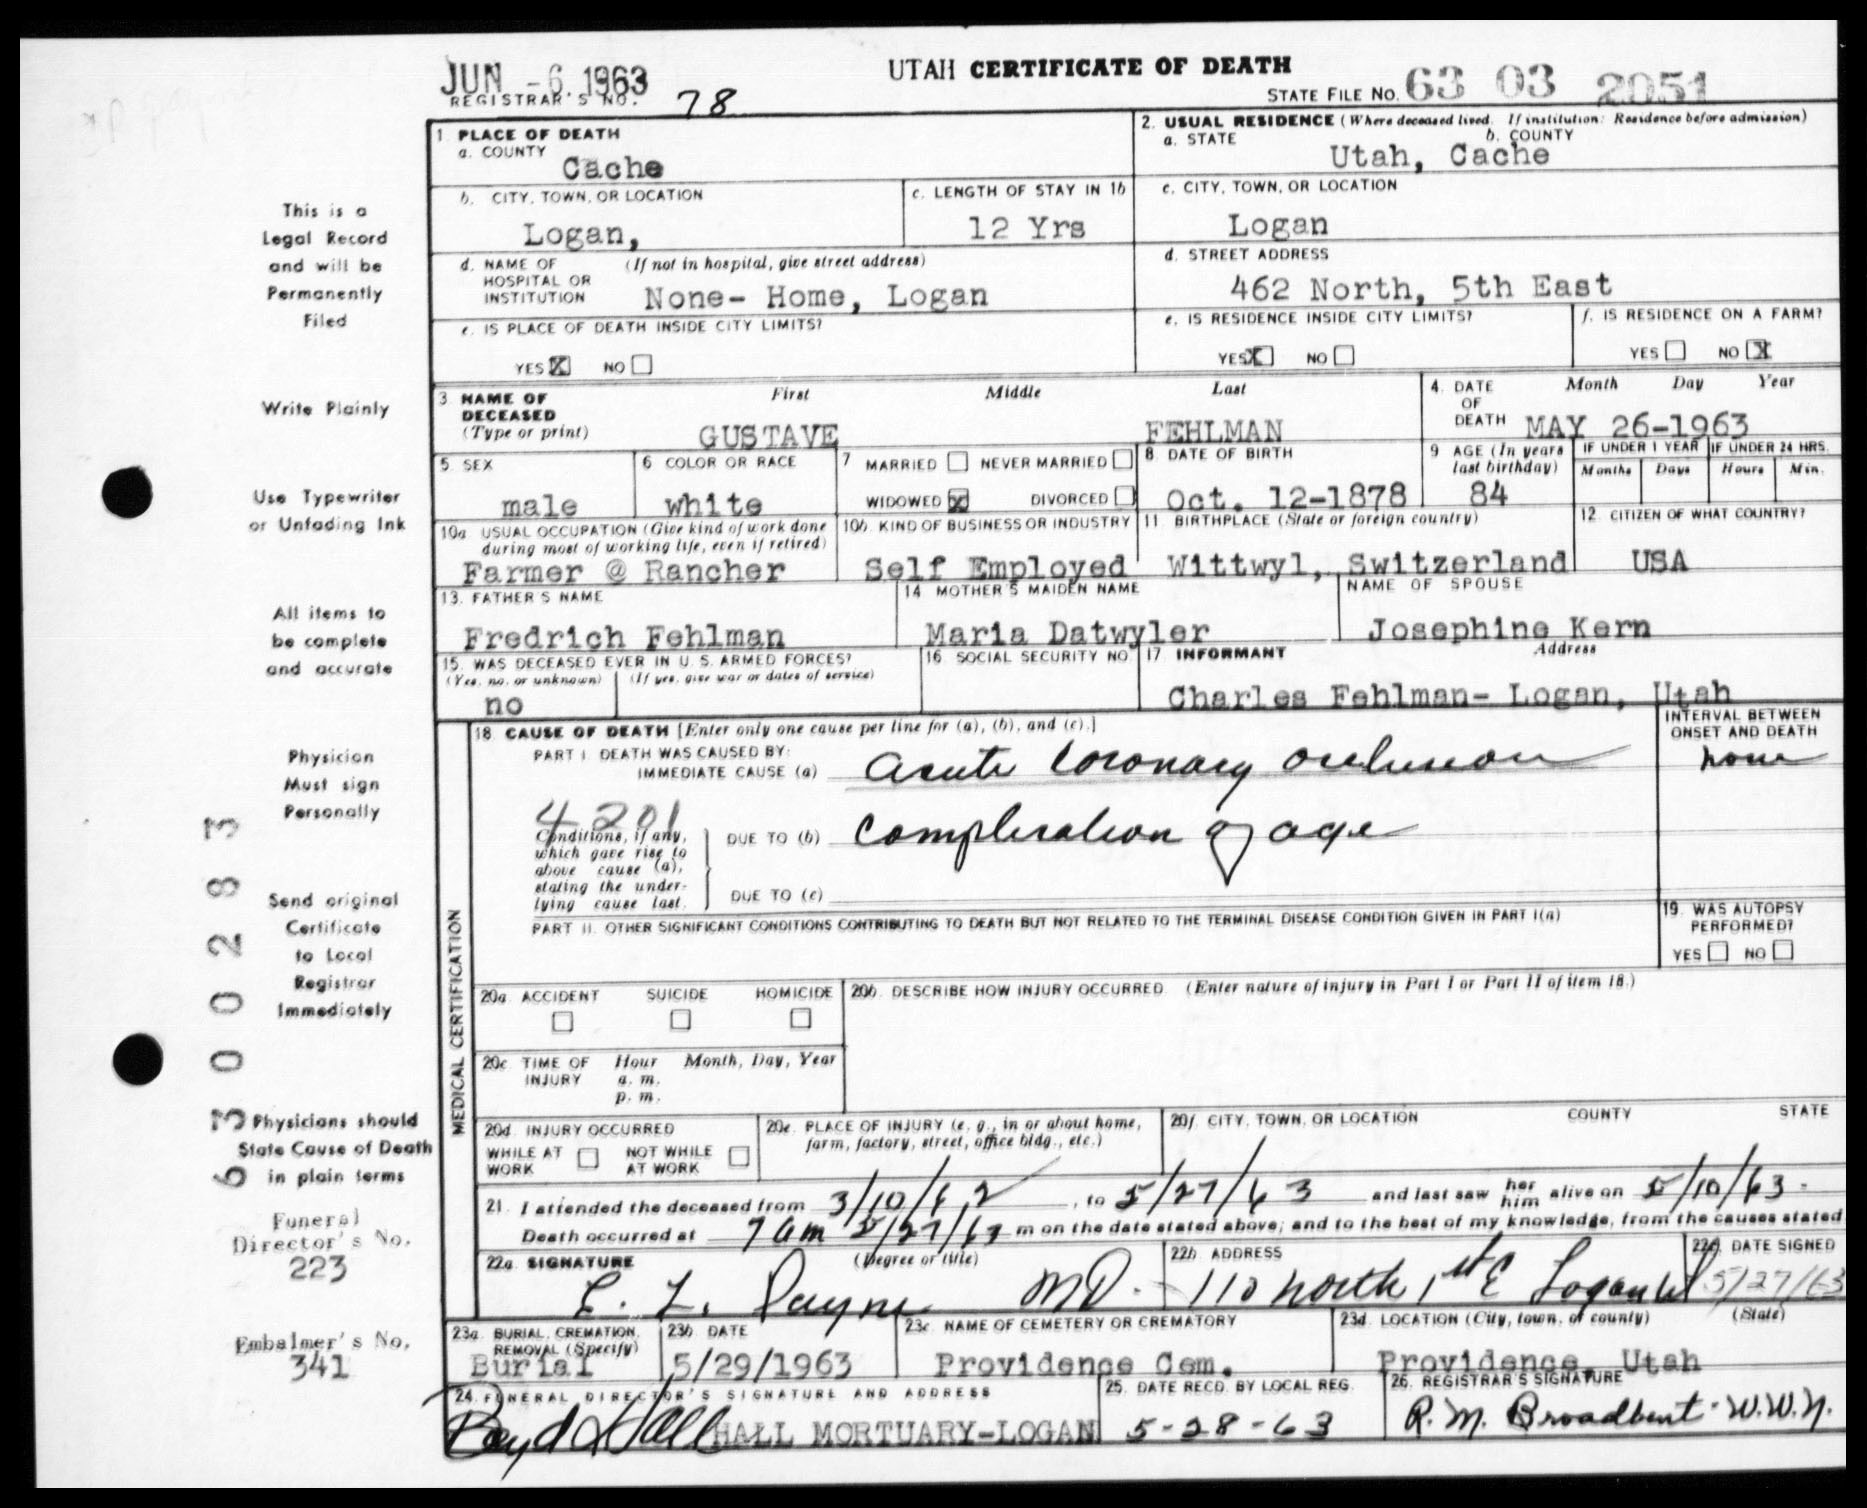 JUN -6. 1963
UTAH CERTIFICATE OF DEATH
REGISTRAR'S NO. 78
STATE FILE NO. 63 03 2051
1. PLACE OF DEATH
a. COUNTY
Cache
2. USUAL RESIDENCE (Where deceased lived. If institution: Residence before admission)
a. STATE b. COUNTY
Utah, Cache
b. CITY, TOWN, OR LOCATION
Logan,
c. LENGTH OF STAY IN 1b
12 Yrs
c. CITY, TOWN, OR LOCATION
Logan
d. NAME OF HOSPITAL OR INSTITUTION (If not in hospital, give street address)
None- Home, Logan
d. STREET ADDRESS
462 North, 5th East
e. IS PLACE OF DEATH INSIDE CITY LIMITS?
YES X NO
e. IS RESIDENCE INSIDE CITY LIMITS?
YES X NO
f. IS RESIDENCE ON A FARM?
YES NO X
3. NAME OF DECEASED (Type or print)
First Middle Last
GUSTAVE FEHLMAN
4. DATE OF DEATH
Month Day Year
MAY 26-1963
5. SEX
male
6. COLOR OR RACE
white
7. MARRIED NEVER MARRIED
WIDOWED X DIVORCED
8. DATE OF BIRTH
Oct. 12-1878
9. AGE (In years last birthday)
84
IF UNDER 1 YEAR
Months Days
IF UNDER 24 HRS.
Hours Min.
10a. USUAL OCCUPATION (Give kind of work done during most of working life, even if retired)
Farmer @ Rancher
10b. KIND OF BUSINESS OR INDUSTRY
Self Employed
11. BIRTHPLACE (State or foreign country)
Wittwyl, Switzerland
12. CITIZEN OF WHAT COUNTRY?
USA
13. FATHER'S NAME
Fredrich Fehlman
14. MOTHER'S MAIDEN NAME
Maria Datwyler
NAME OF SPOUSE
Josephine Kern
15. WAS DECEASED EVER IN U. S. ARMED FORCES?
(Yes, no, or unknown) (If yes, give war or dates of service)
no
16. SOCIAL SECURITY NO.
17. INFORMANT Address
Charles Fehlman- Logan, Utah
MEDICAL CERTIFICATION
18. CAUSE OF DEATH [Enter only one cause per line for (a), (b), and (c).]
INTERVAL BETWEEN ONSET AND DEATH
PART I. DEATH WAS CAUSED BY:
IMMEDIATE CAUSE (a) Acute Coronary occlusion
4201
Conditions, if any, which gave rise to above cause (a), stating the underlying cause last.
DUE TO (b) Complication of age
DUE TO (c)
PART II. OTHER SIGNIFICANT CONDITIONS CONTRIBUTING TO DEATH BUT NOT RELATED TO THE TERMINAL DISEASE CONDITION GIVEN IN PART I(a)
19. WAS AUTOPSY PERFORMED?
YES NO
20a. ACCIDENT SUICIDE HOMICIDE
20b. DESCRIBE HOW INJURY OCCURRED. (Enter nature of injury in Part I or Part II of item 18.)
20c. TIME OF INJURY
Hour Month, Day, Year
a. m.
p. m.
20d. INJURY OCCURRED
WHILE AT WORK NOT WHILE AT WORK
20e. PLACE OF INJURY (e. g., in or about home, farm, factory, street, office bldg., etc.)
20f. CITY, TOWN, OR LOCATION COUNTY STATE
21. I attended the deceased from 3/10/62, to 5/27/63 and last saw her him alive on 5/10/63.
Death occurred at 7 am 5/27/63 m on the date stated above; and to the best of my knowledge, from the causes stated
22a. SIGNATURE (Degree or title)
L. Payne MD.
22b. ADDRESS
110 North 1st E Logan Ut
22c. DATE SIGNED
5/27/63
23a. BURIAL, CREMATION, REMOVAL (Specify)
Burial
23b. DATE
5/29/1963
23c. NAME OF CEMETERY OR CREMATORY
Providence Cem.
23d. LOCATION (City, town, or county) (State)
Providence, Utah
24. FUNERAL DIRECTOR'S SIGNATURE AND ADDRESS
Boyd Hall HALL MORTUARY-LOGAN
25. DATE RECD. BY LOCAL REG.
5-28-63
26. REGISTRAR'S SIGNATURE
R. M. Broadbent - W.W.N.
This is a
Legal Record
and will be
Permanently
Filed
Write Plainly
Use Typewriter
or Unfading Ink
All items to
be complete
and accurate
Physician
Must sign
Personally
Send original
Certificate
to Local
Registrar
Immediately
Physicians should
State Cause of Death
in plain terms
Funeral
Director's No.
223
Embalmer's No.
341
6300283